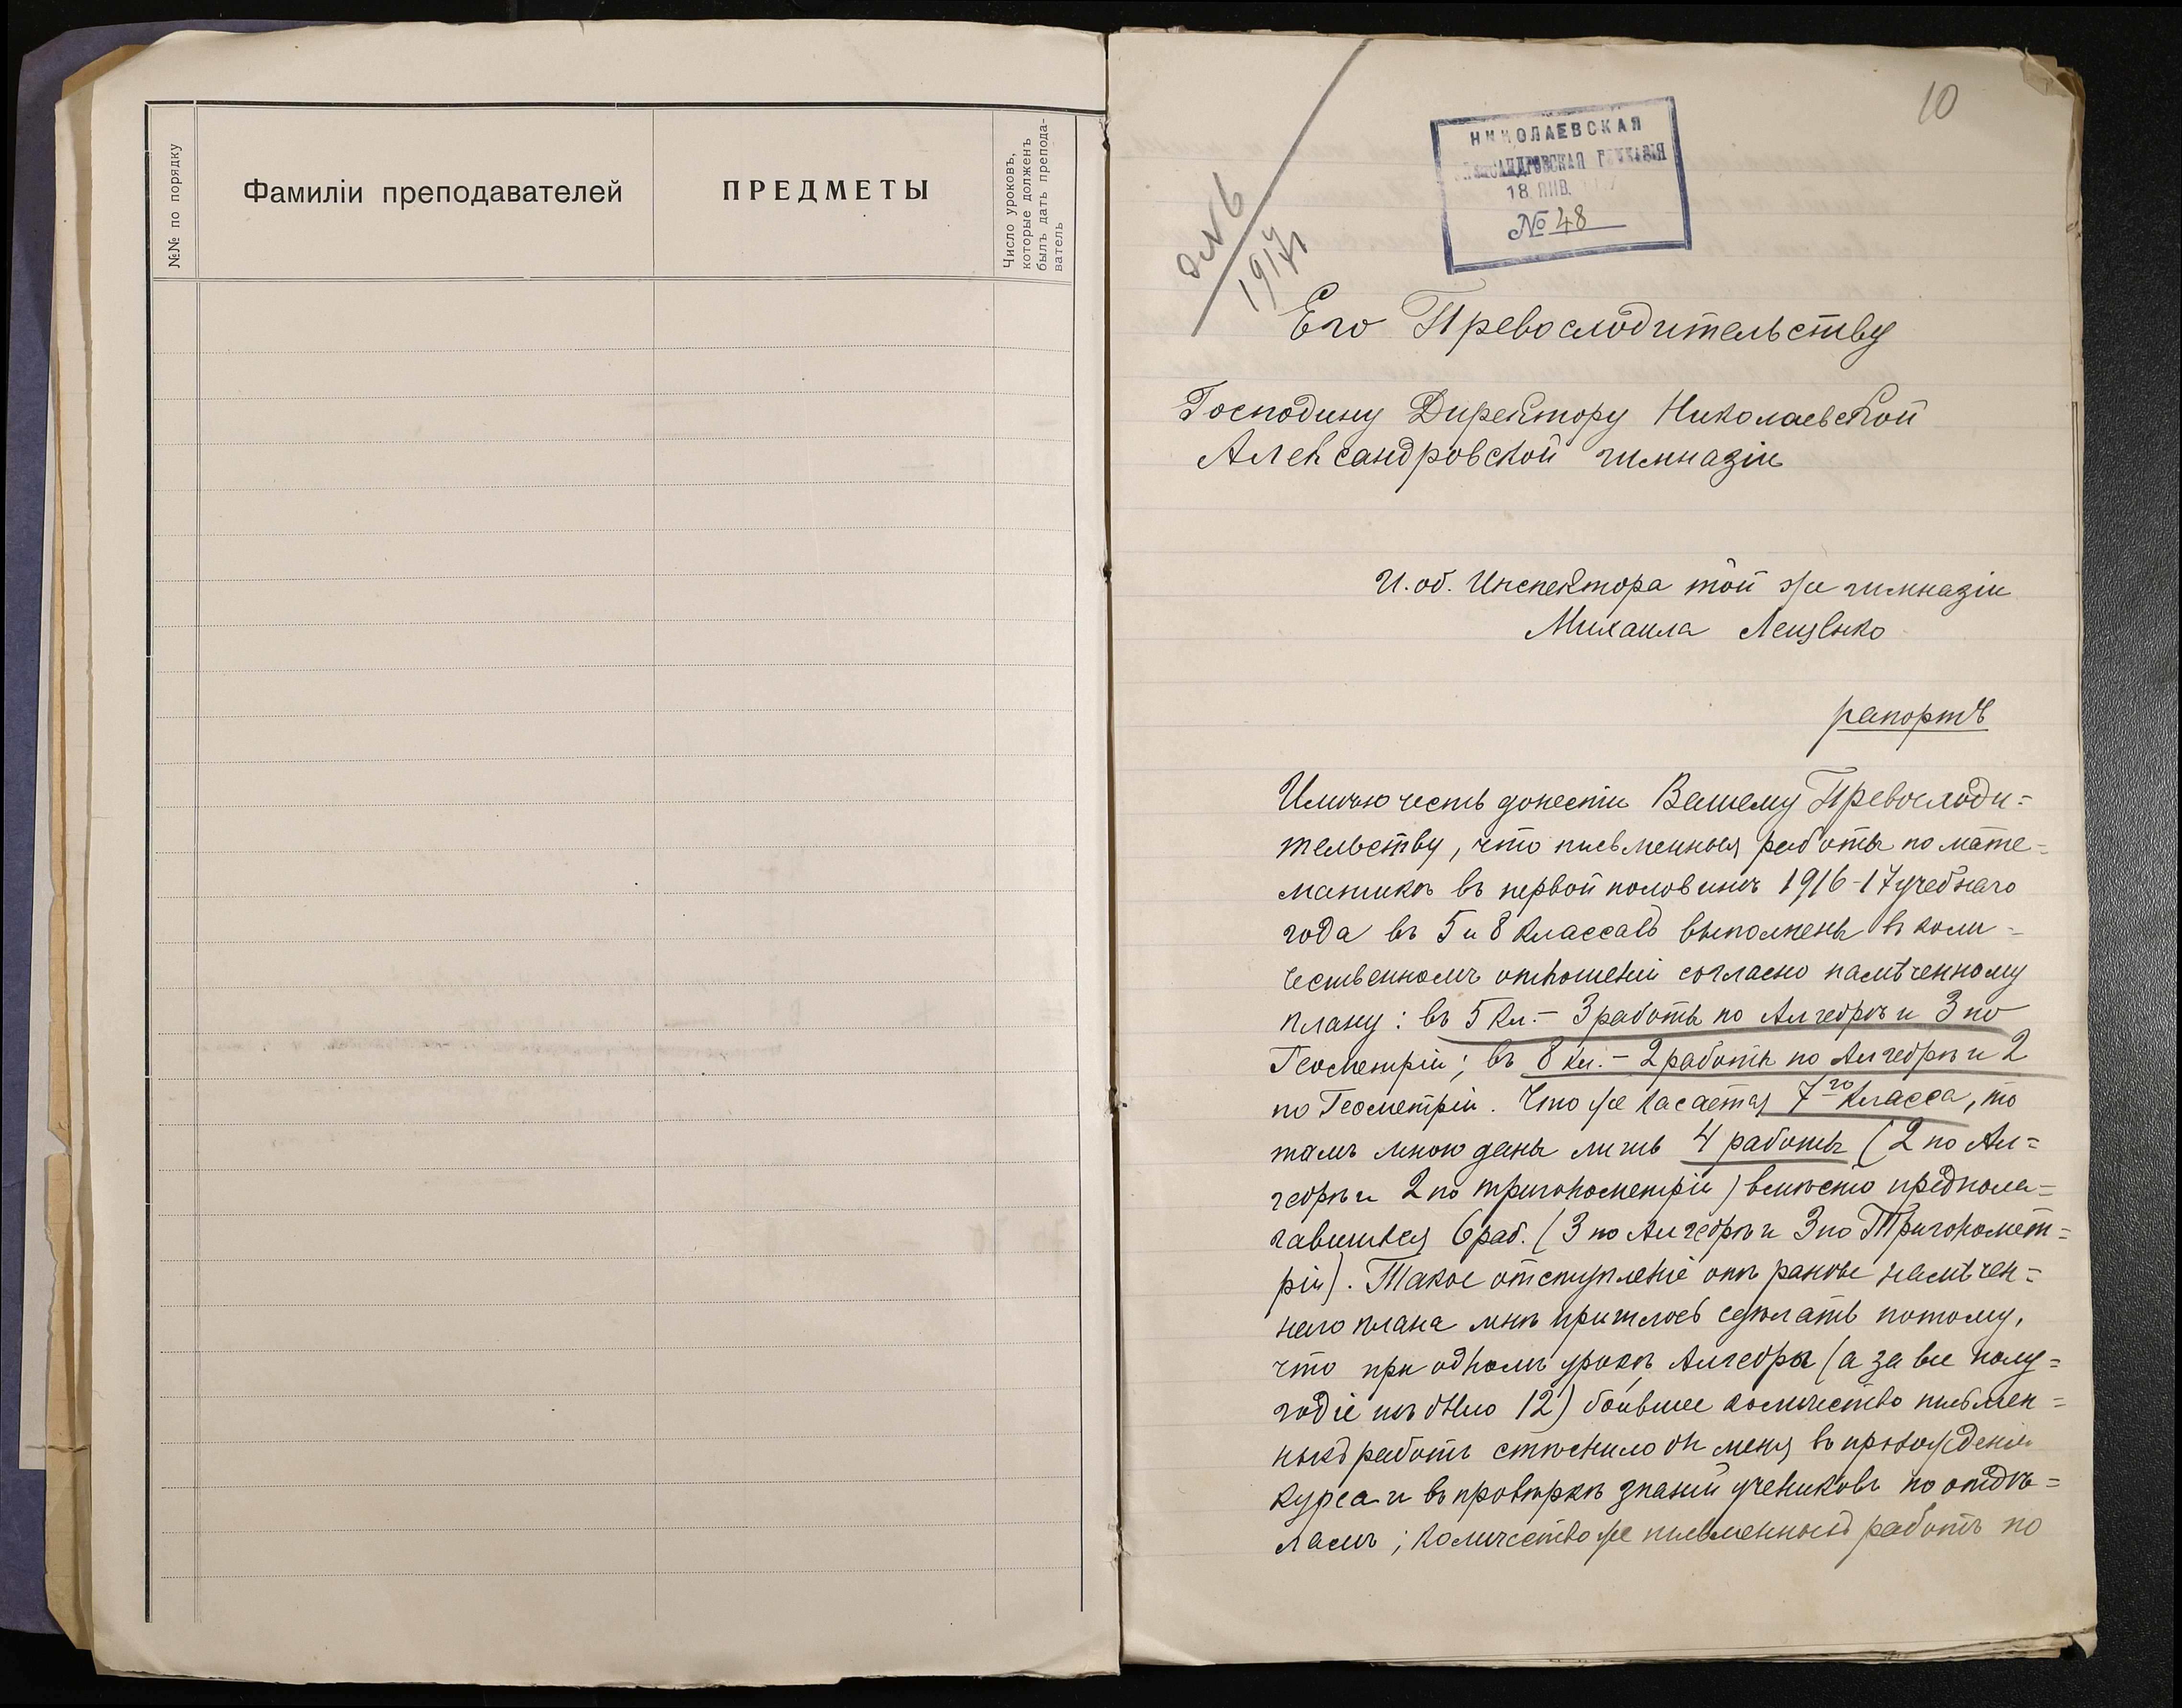 №№ по порядку
Фамиліи преподавателей
ПРЕДМЕТЫ
Число уроковъ,
которые долженъ
былъ дать препода-
ватель
10
НИКОЛАЕВСКАЯ
АЛЕКСАНДРОВСКАЯ ГИМНАЗІЯ
18 ЯНВ.
№ 48
1917
Его Превосходительству
Господину Директору Николаевской
Александровской гимназіи
И. об. Инспектора той же гимназіи
Михаила Лещенко
рапортъ
Имѣю честь донести Вашему Превосходи=
тельству, что письменныя работы по мате=
матикѣ въ первой половинѣ 1916-17 учебнаго
года въ 5 и 8 классахъ выполнены въ коли=
чественномъ отношеніи согласно намѣченному
плану: въ 5 кл. – 3 работы по Алгебрѣ и 3 по
Геометріи; въ 8 кл. – 2 работы по Алгебрѣ и 2
по Геометріи. Что же касается 7го класса, то
тамъ мною даны лишь 4 работы (2 по Ал=
гебрѣ и 2 по тригонометріи) вмѣсто предпола=
гавшихся 6 раб. (3 по Алгебрѣ и 3 по Тригономет=
ріи). Такое отступленіе отъ ранѣе намѣчен=
наго плана мнѣ пришлось сдѣлать потому,
что при одномъ урокѣ Алгебры (а за все полу=
годіе ихъ было 12) бо́льшее количество письмен=
ныхъ работъ стѣснило бы меня въ прохожденіи
курса и въ провѣркѣ знаній учениковъ по отдѣ=
ламъ; количество же письменныхъ работъ по